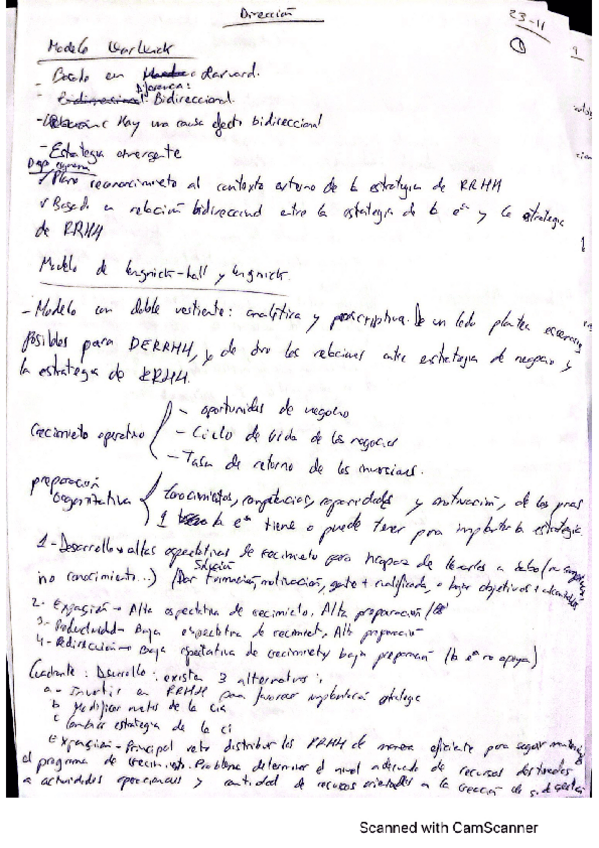 Dirección
23-11
1
Modelo Warwick
- Basado en Harvard.
Diferencia:
- Bidireccional: Bidireccional.
- Hay una causa efecto bidireccional
- Estrategia emergente
✓ Pleno reconocimiento al contexto externo de la estrategia de RRHH
✓ Basado en relación bidireccional entre la estrategia de la eª y la estrategia
de RRHH
Modelo de Lengnick-hall y Lengnick.
- Modelo con doble vertiente: analítica y prescriptiva. De un lado plantea escenarios
posibles para DERRHH, y de otro las relaciones entre estrategia de negocio y
la estrategia de RRHH.
Crecimiento operativo
- oportunidades de negocio
- Ciclo de vida de los negocios
- Tasa de retorno de las inversiones.
preparación
organizativa
Conocimientos, competencias, capacidades y motivación, de las pnas
la eª tiene o puede tener para implantar la estrategia
1 - Desarrollo altas expectativas de crecimiento pero incapaz de llevarlas a cabo
Solución
no conocimiento...) (Dar formación, motivación, gente + cualificada, o bajar objetivos + alcanzables
2 - Expansión - Alta expectativa de crecimiento. Alta preparación
3 - Productividad - Baja expectativa de crecimient. Alta preparación
4 - Redirección - Baja expectativa de crecimiento y baja preparación (la eª no apoya)
Cuadrante: Desarrollo: existen 3 alternativas:
a - Invertir en RRHH para favorecer implantación estrategia
b Modificar metas de la cía
c Cambiar estrategia de la cí
Expansión - Principal reto distribuir los RRHH de manera eficiente para seguir
el programa de crecimiento. Problema determinar el nivel adecuado de recursos destinados
a actividades operacionales y cantidad de recursos orientados a la creación de s. de gestión
Scanned with CamScanner